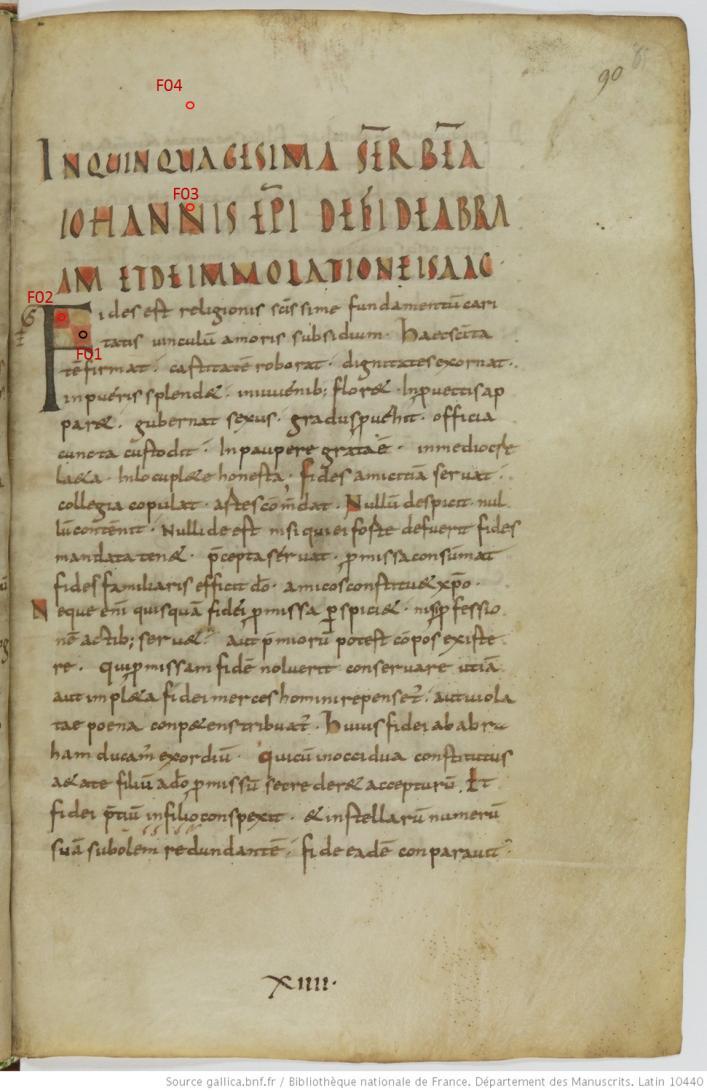 90
F04
IN QUINQUAGESIMA SER̅ BEA̅
F03
IOHANNIS EP̅I DE FIDE ABRA
AM ET DE IMMOLATIONE ISAAC
F02
Fides est religionis sc̅issime fundamentu̅ cari
tatis vinculu̅ amoris subsidium · Haec sc̅ita
F01
te̅ firmat · castitate̅ roborat · dignitates exornat ·
in pueris splend& · in iuuenib; flor& · In puectis ap
par& · gubernat sexus · gradus puehit · officia
cuncta custodit · In paupere grata e̅ · in mediocre
la&a · In locupl&e honesta · fides amicitia̅ servat ·
collegia copulat · artes co̅m̅dat · Nullu̅ despicit · nul
lu̅ conte̅nit · Nulli deest nisi qui ei forte defuerit fides
mandata ten& · p̅cepta servat · pmissa consu̅mat
fides familiaris efficit do̅ · amicos constitu& xp̅o ·
Neque eni̅ quisqua̅ fidei pmissa pspici& · nisi pfessio
ne̅ actib; seru& · aut p̅mioru̅ potest co̅pos existe
re · qui pmissam fide̅ noluerit conservare utia̅
aut impl&a fidei merces homini repenset̅ · aut uiola
tae poena conp&ens tribuat̅ · Huius fidei ab abra
ham ducam̅ exordiu̅ · Quicu̅ in occidua constitutus
a&ate filiu̅ a do̅ pmissu̅ se creder& accepturu̅ · Et
fidei p̅tiu̅ in filio conspexit · & in stellaru̅ numeru̅
sua̅ subolem redundante̅ · fide eade̅ conparauit
XIIII·
Source gallica.bnf.fr / Bibliothèque nationale de France. Département des Manuscrits. Latin 10440